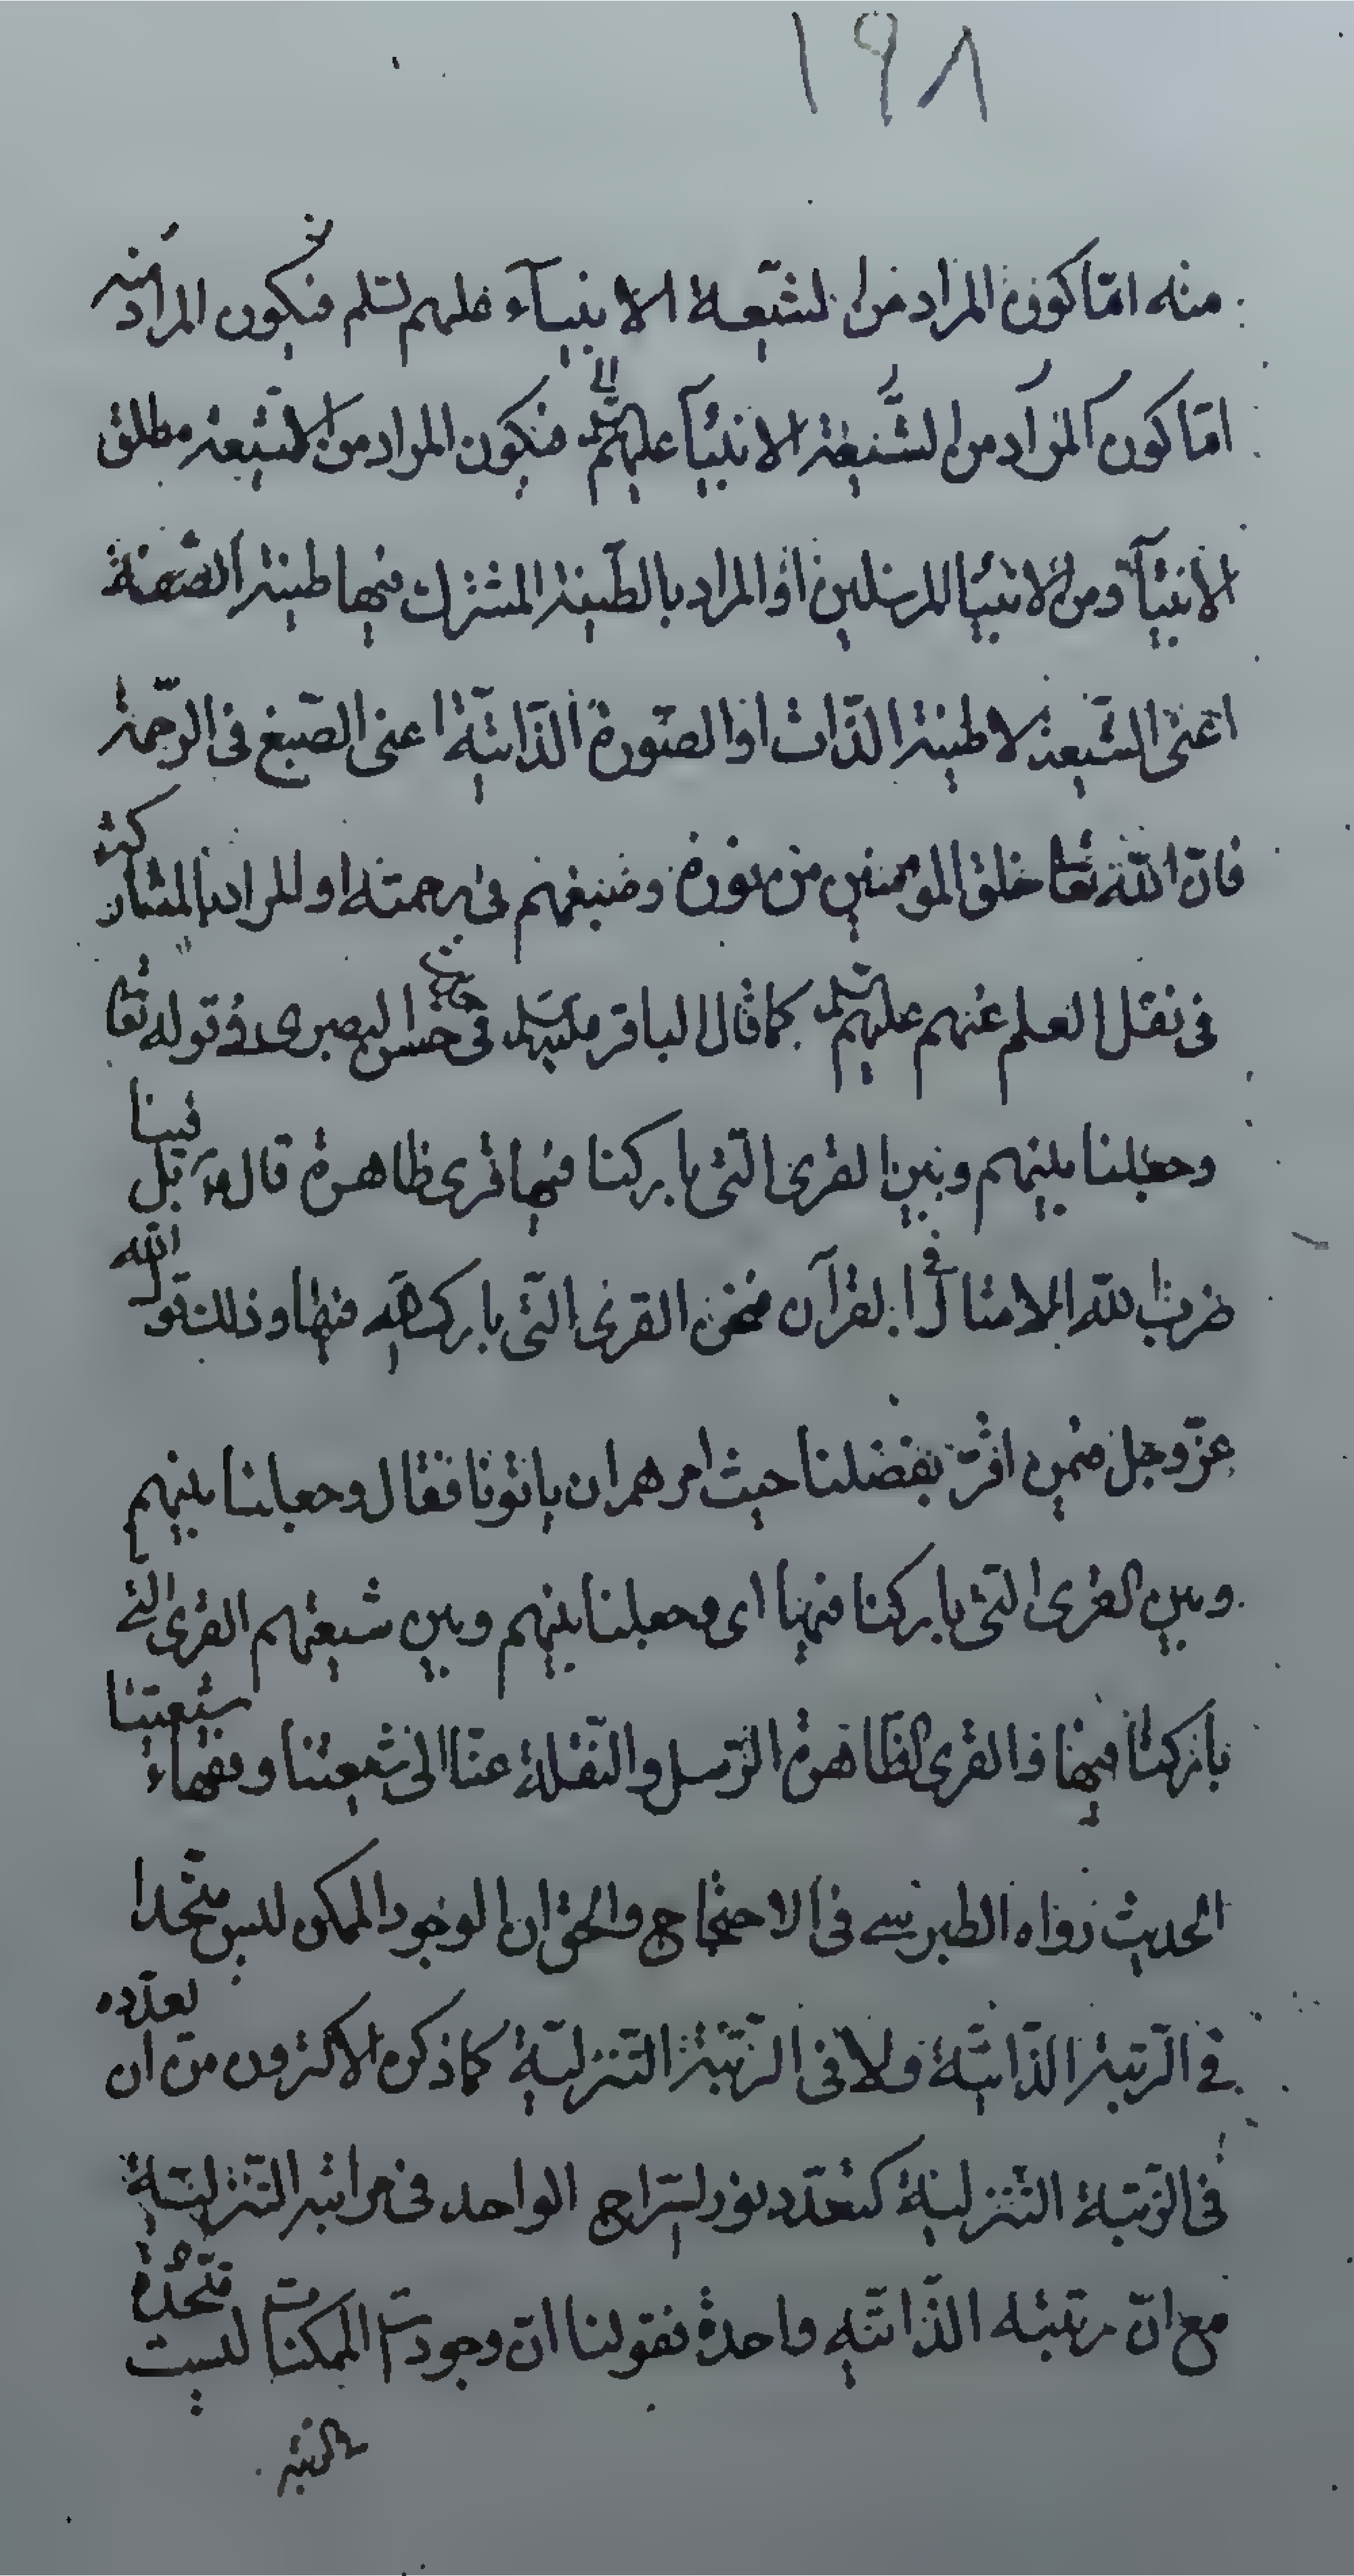 ١٩٨
منه امّا كون المراد من الشّيعة الانبيآء عليهم السلم فيكون المراد منه
امّا كون المراد من الشّيعة الانبيآ عليهم السلم فيكون المراد من الشيعة مطلق
الانبيآء ومن الانبيا المرسلين او المراد بالطّينة المشترك فيها طينة الصّفة
اعنى الشّيعة لا طينة الذّات او الصّورة الذّاتيّة اعنى الصّبغ فى الرّحمة
فانّ اللّه تعا خلق المومنين من نوره وصبغهم فى رحمته او المراد بالمشاركة
فى نقل العلم عنهم عليهم السلم كما قال الباقر عليه السلم فى حديث حسن البصرى فى قوله تعا
وجعلنا بينهم وبين القرى التى باركنا فيها قرى ظاهرة قال ع بل فينا
ضرب اللّه الامثال فى القرآن فنحن القرى الّتى بارك اللّه فيها وذلك قول اللّه
عزّ وجل فمن اقرّ بفضلنا حيث امرهم ان ياتونا فقال وجعلنا بينهم
وبين القرى الّتى باركنا فيها اى وجعلنا بينهم وبين شيعتهم القرى التى
باركنا فيها والقرى الظّاهرة الرّسل والنّقلة عنّا الى شيعتنا وفقهاء شيعتنا
الحديث رواه الطبرسى فى الاحتجاج والحق ان الوجود الممكن ليس متّحدا
فى الرّتبة الذّاتيّة ولا فى الرّتبة التّنزليّة كما ذكره الاكثرون من ان تعدّده
فى الرّتبة التّنزليّة كتعدّد نور السّراج الواحد فى مراتبه التّنزليّة
مع انّ مرتبته الذّاتيّه واحدة فقولنا انّ وجودات الممكنات ليست متّحدة